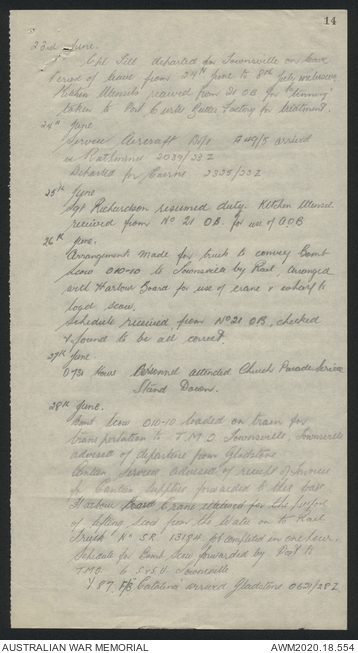 14
23rd June.
Cpl Sell departed for Townsville on leave
Period of leave from 24th June to 8th July inclusive
Kitchen Utensils received from 21 OB for tinning
taken to Port Curtis Butter Factory for treatment.
24th June
Service Aircraft A49/5 arrived
2039/23Z
Departed for Cairns 2335/23Z
25th June
Sgt Richardson resumed duty. Kitchen Utensils
received from No 21 OB. for use of AOB
26th June.
Arrangement made for truck to convey Bomb
Scow 010-10 to Townsville by Rail, arranged
with Harbour Board for use of crane & wharf to
load scow.
Schedule received from No 21 OB, checked
& found to be all correct.
27th June
0730 Hours Personnel attended Church Parade Service
Stand Down.
28th June.
Bomb Scow 010-10 loaded on train for
transportation to T.M.O Townsville. Townsville
advised of departure from Gladstone
Canteen services advised of receipt of Invoices
for Canteen supplies forwarded to this base
Harbour Board Crane for the purpose
of lifting scow from the water on to Rail
Truck No SR 13184 job completed in one hour.
Schedule for Bomb Scow forwarded by
T.M.O Townsville
Catalina arrived Gladstone 0621/28Z
AUSTRALIAN WAR MEMORIAL
AWM2020.18.554